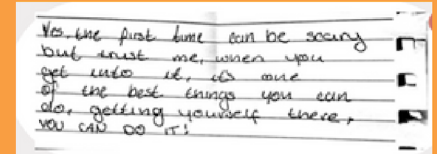 Yes, the first time can be scary
but trust me, when you
get into it, it's one
of the best things you can
do, getting yourself there,
YOU CAN DO IT!